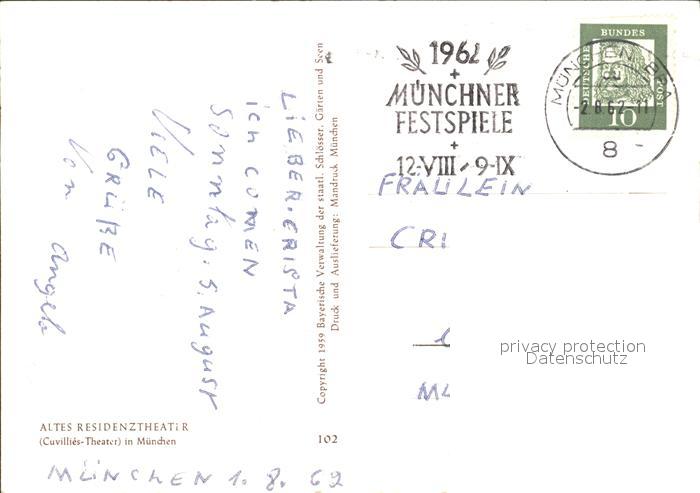 1962
MÜNCHNER
FESTSPIELE
12·VIII - 9·IX
BUNDES
DEUTSCHE
POST
10
MÜNCHEN BP
-2.8.62-11
8
FRAULEIN
CRI
ML
privacy protection
Datenschutz
LIEBER.CRISTA
ICH COMEN
Sonntag. 5. August
VIELE
GRÜßE
Von Angelo
Copyright 1959 Bayerische Verwaltung der staatl. Schlösser, Gärten und Seen
Druck und Auslieferung: Mandruck München
ALTES RESIDENZTHEATER
(Cuvilliés-Theater) in München
102
MÜNCHEN 1. 8. 62